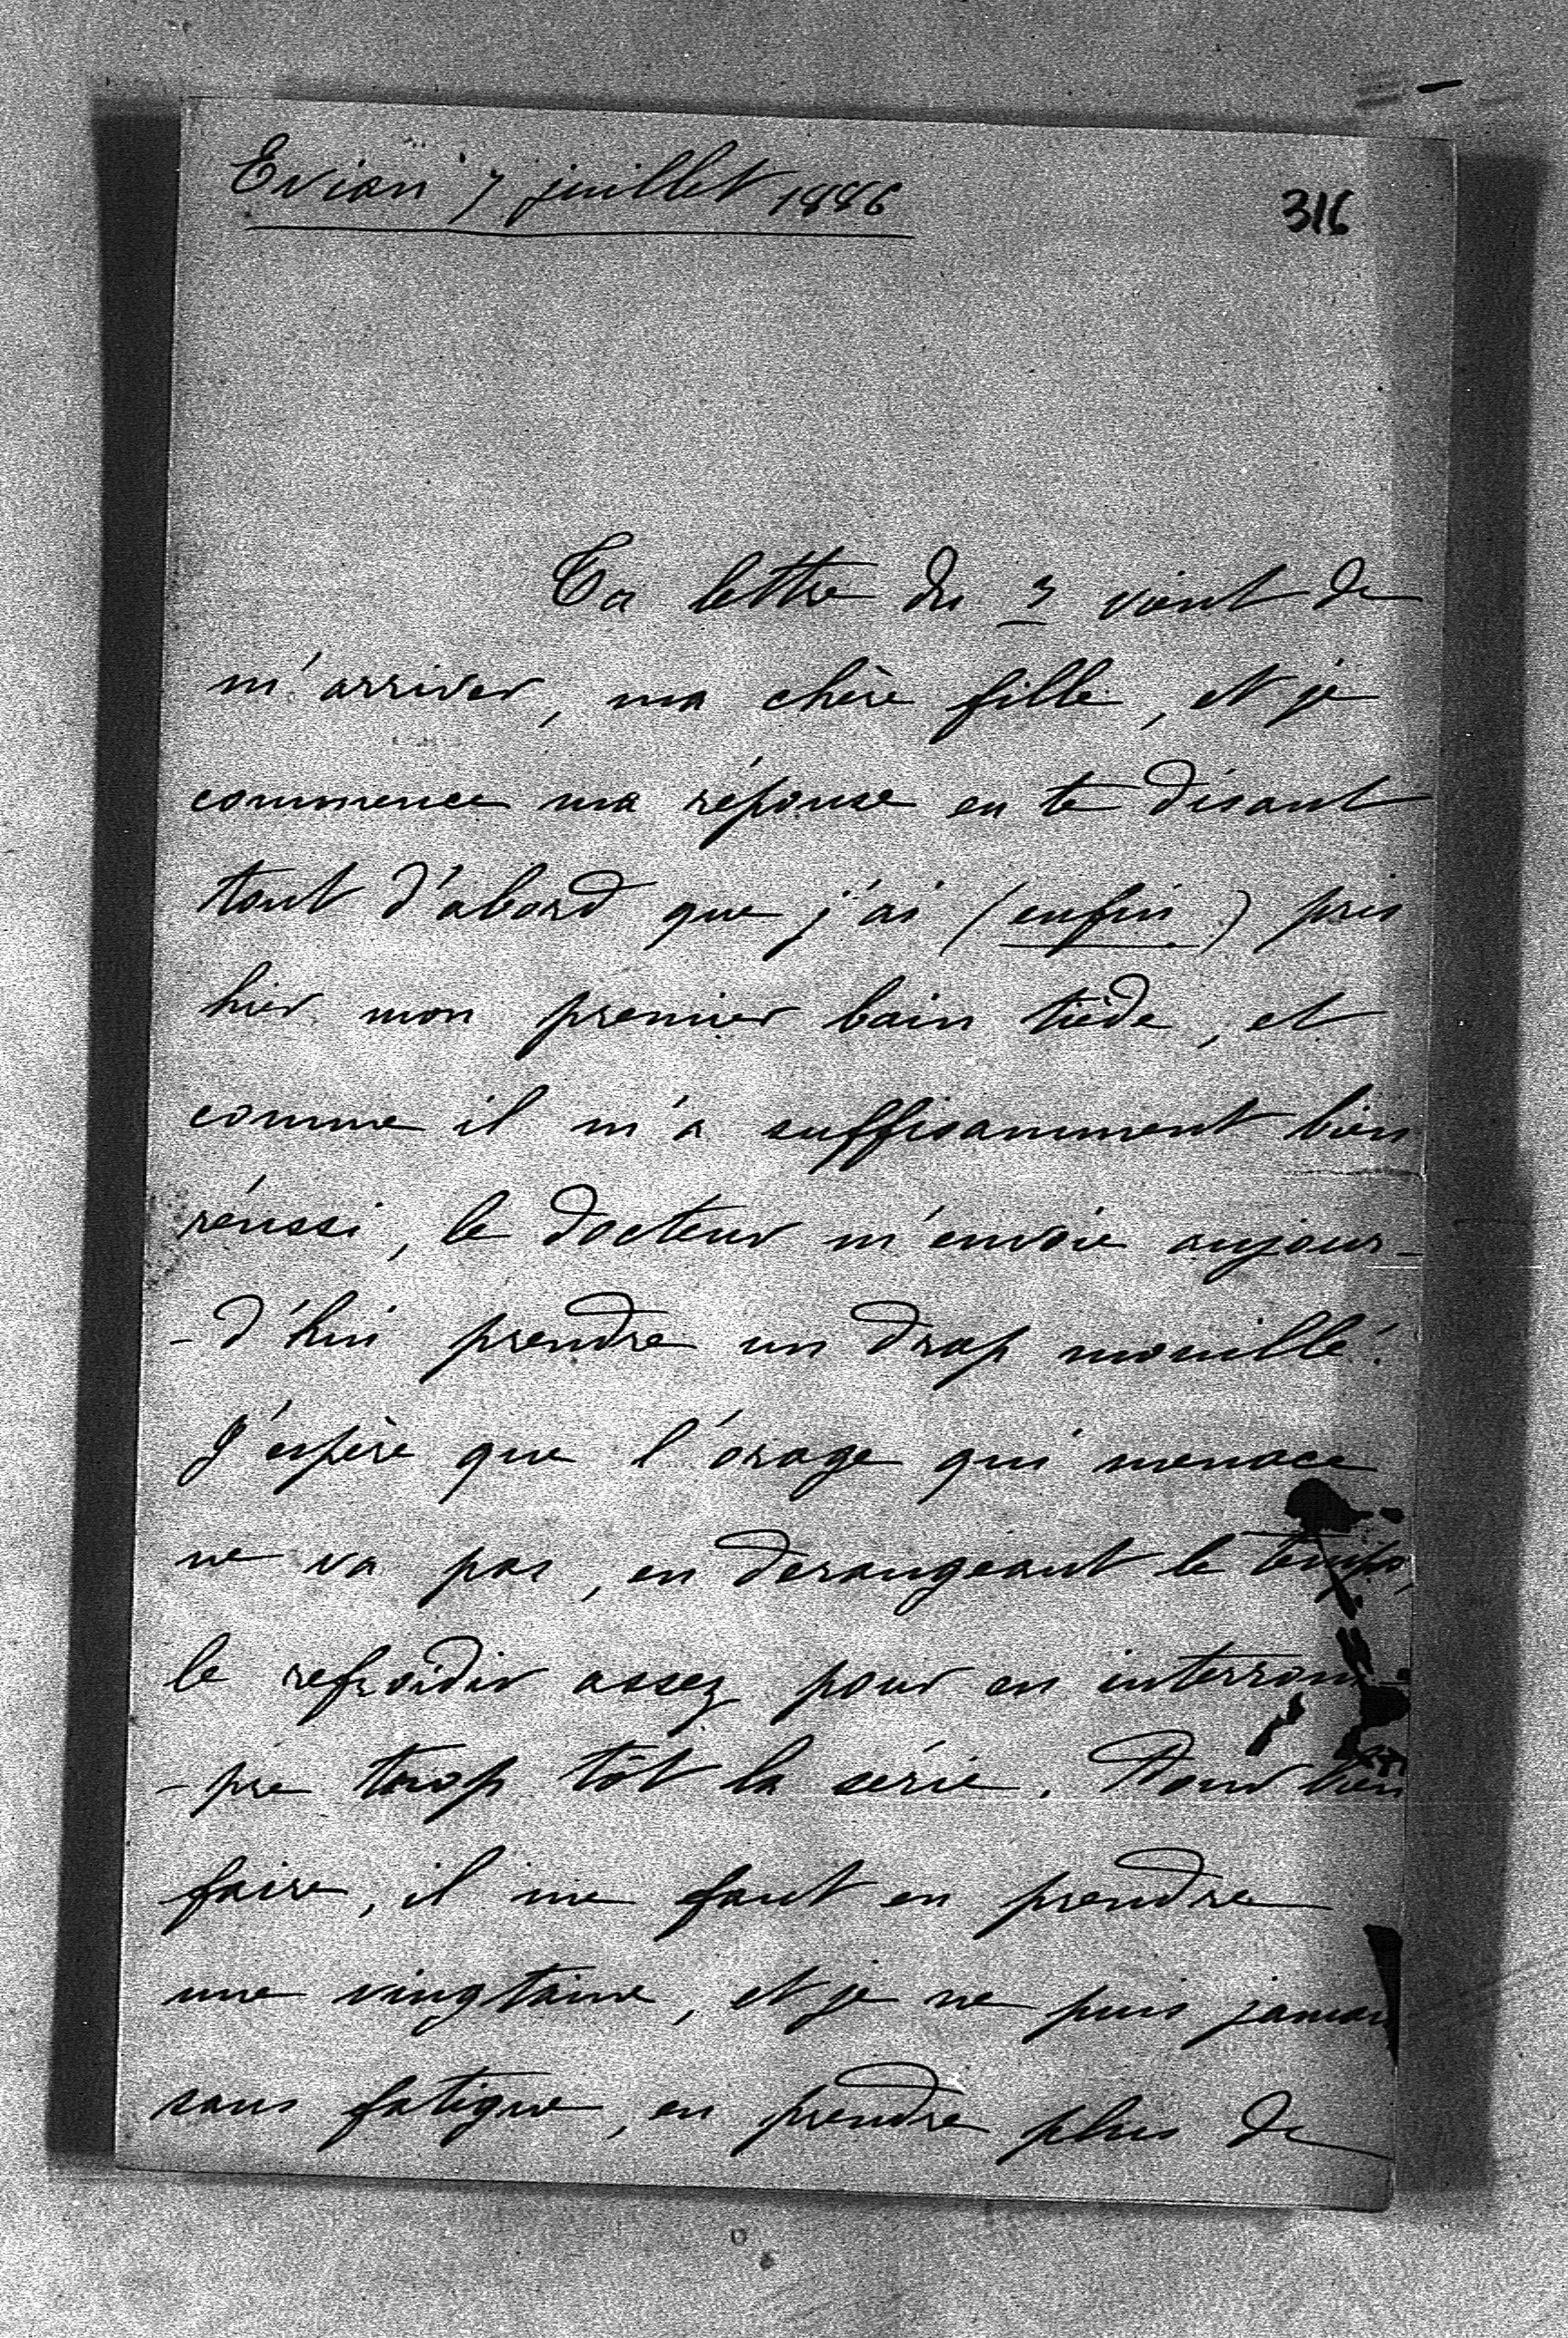 Evian 7 juillet 1886
316
Ta lettre du 3 vient de
m'arriver, ma chère fille, et je
commence ma réponse en te disant
tout d'abord que j'ai (enfin) pris
hier mon premier bain tiède, et
comme il m'a suffisamment bien
réussi, le docteur m'envoie aujour-
-d'hui prendre un drap mouillé.
J'espère que l'orage qui menace
ne va pas, en derangeant le temps,
le refroidir assez pour en interrom-
-pre trop tôt la série. Pour bien
faire, il me faut en prendre
une vingtaine, et je ne puis jamais
sans fatigue, en prendre plus de